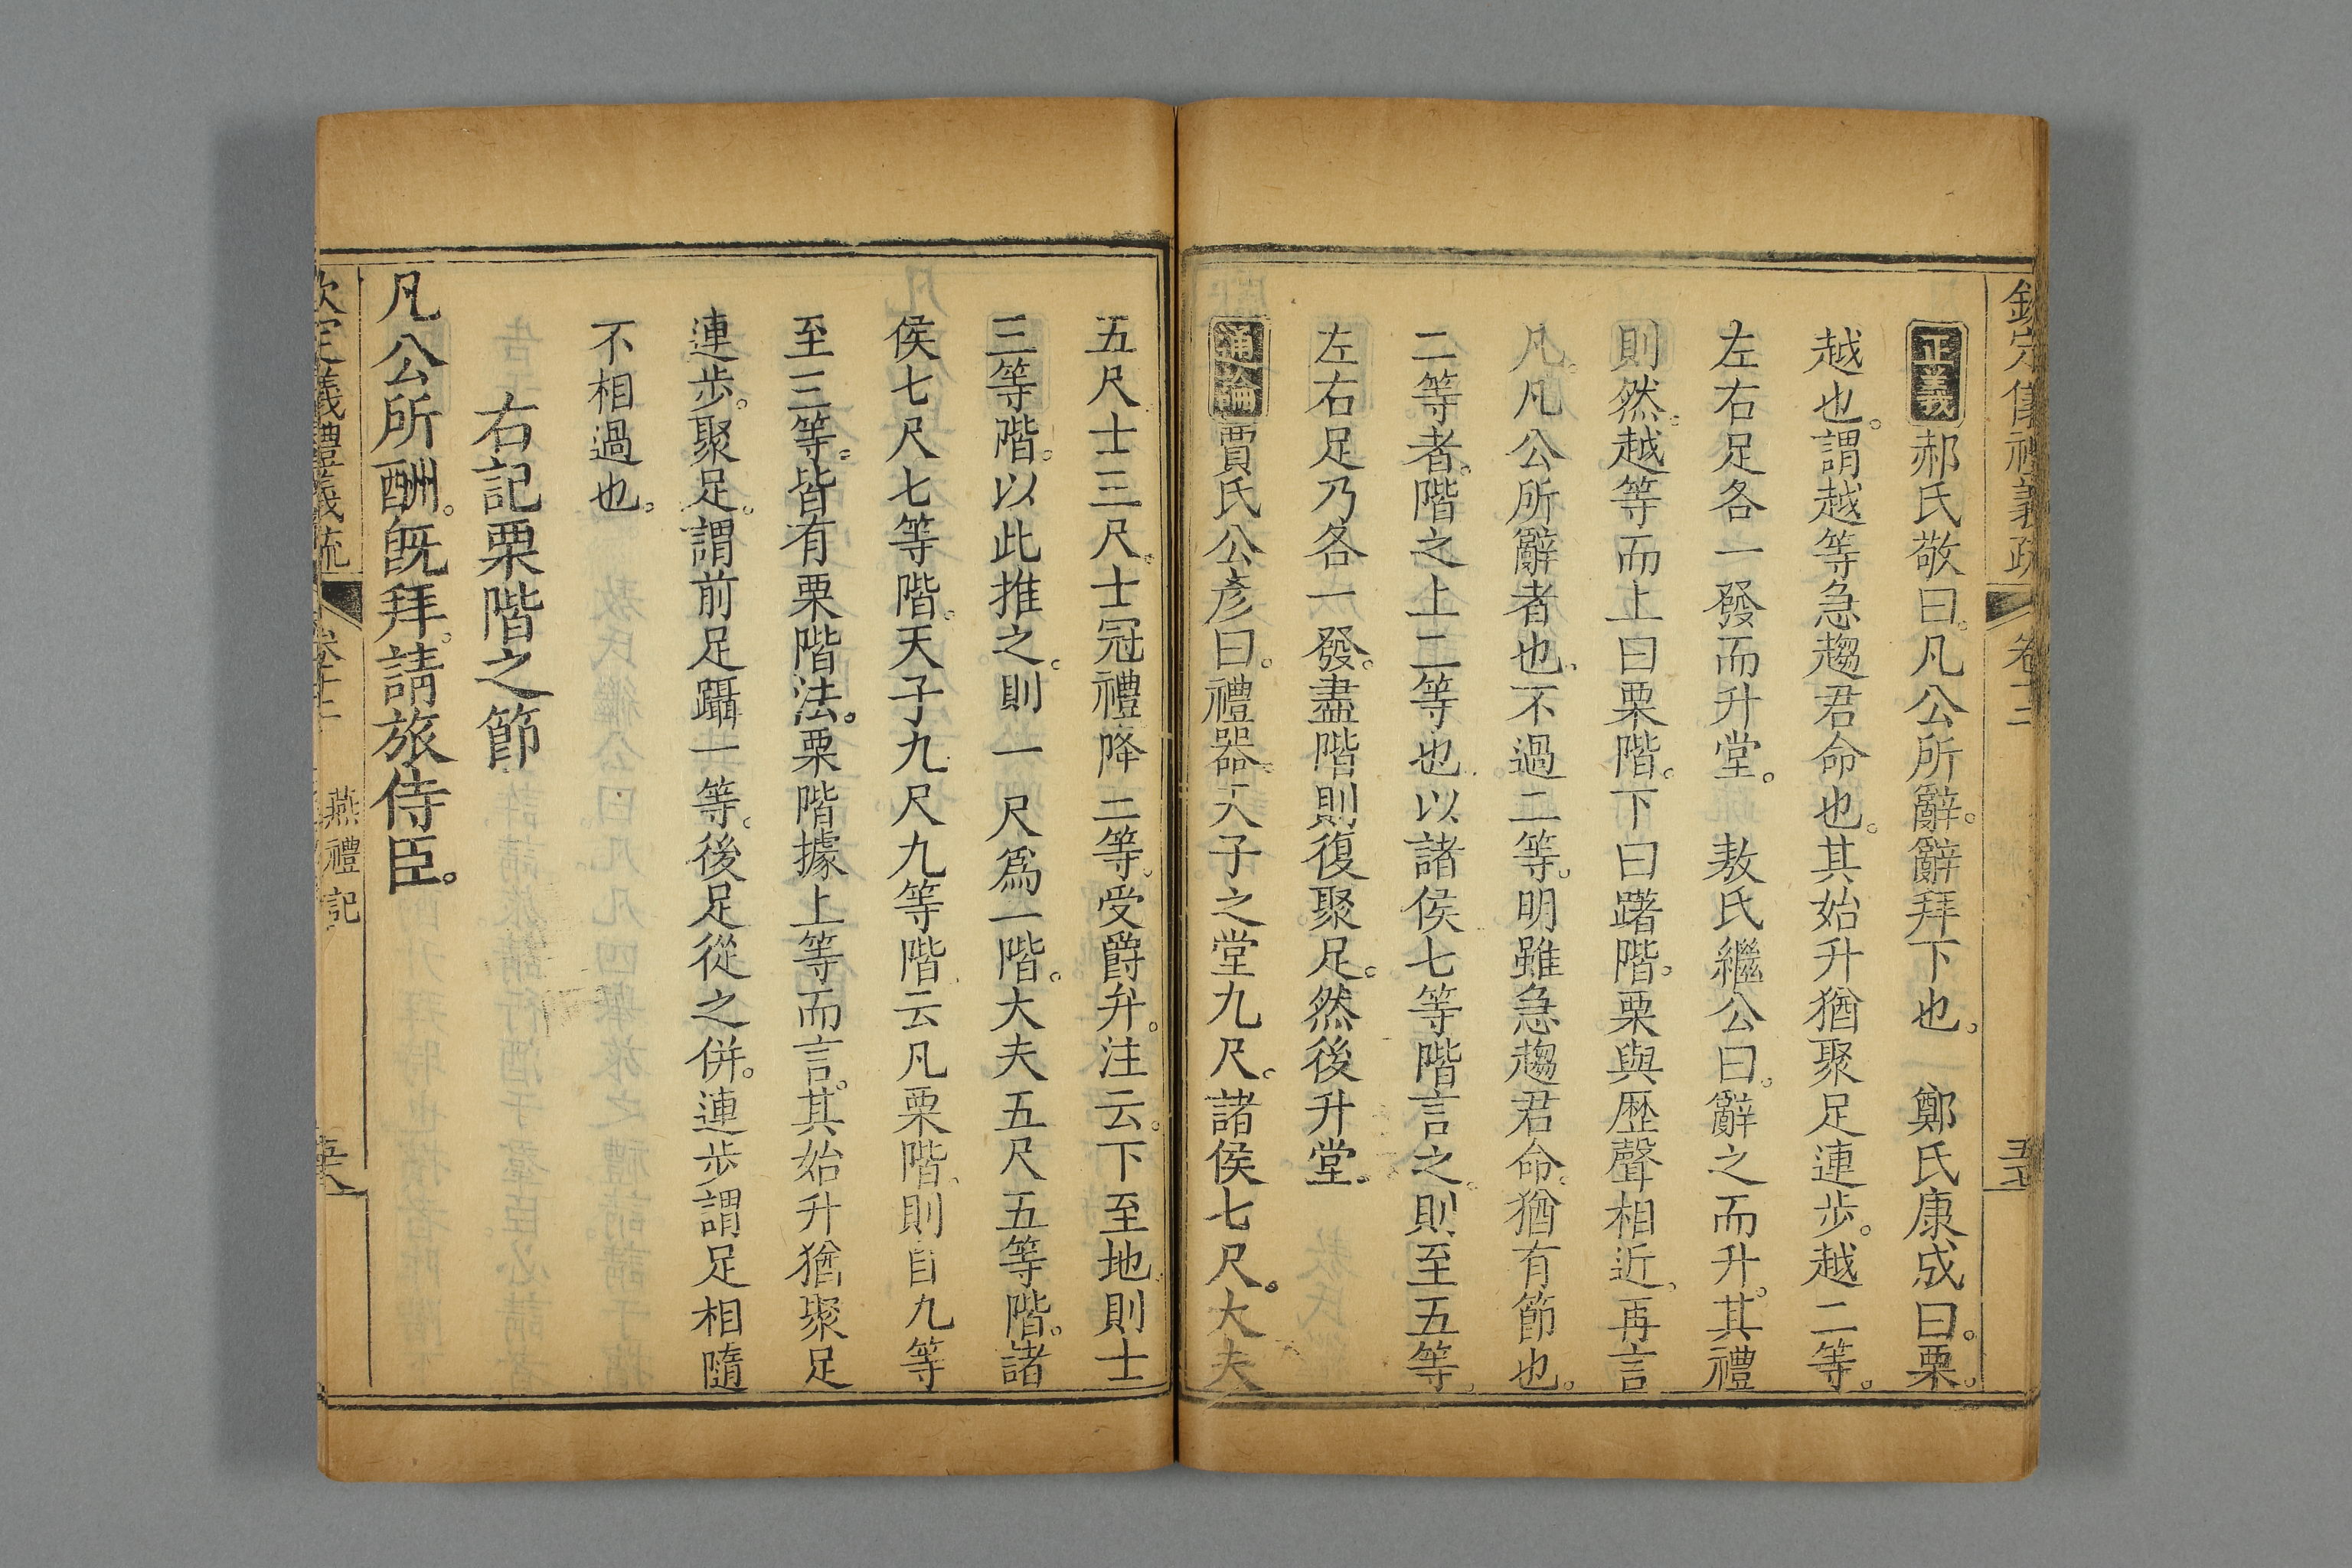 欽定儀禮義疏 卷十二
正義 郝氏敬曰。凡公所辭。辭拜下也。 鄭氏康成曰。栗。
越也。謂越等急趨君命也。其始升猶聚足連步。越二等。
左右足各一發而升堂。 敖氏繼公曰。辭之而升。其禮
則然。越等而上曰栗階。下曰躇階。栗與歷聲相近。再言
凡。凡公所辭者也。不過二等。明雖急趨君命。猶有節也。
二等者。階之上二等也。以諸侯七等階言之。則至五等。
左右足乃各一發。盡階則復聚足。然後升堂。
通論 賈氏公彥曰。禮器。天子之堂九尺。諸侯七尺。大夫
五尺士三尺。士冠禮降二等。受爵弁。注云。下至地。則士
三等階。以此推之。則一尺爲一階。大夫五尺五等階。諸
侯七尺七等階。天子九尺九等階云凡栗階。則自九等
至三等。皆有栗階法。栗階據上等而言。其始升猶聚足
連步。聚足。謂前足躡一等。後足從之併。連步謂足相隨
不相過也。
右記栗階之節
凡公所酬。旣拜。請旅侍臣。
欽定儀禮義疏 卷十二 燕禮記